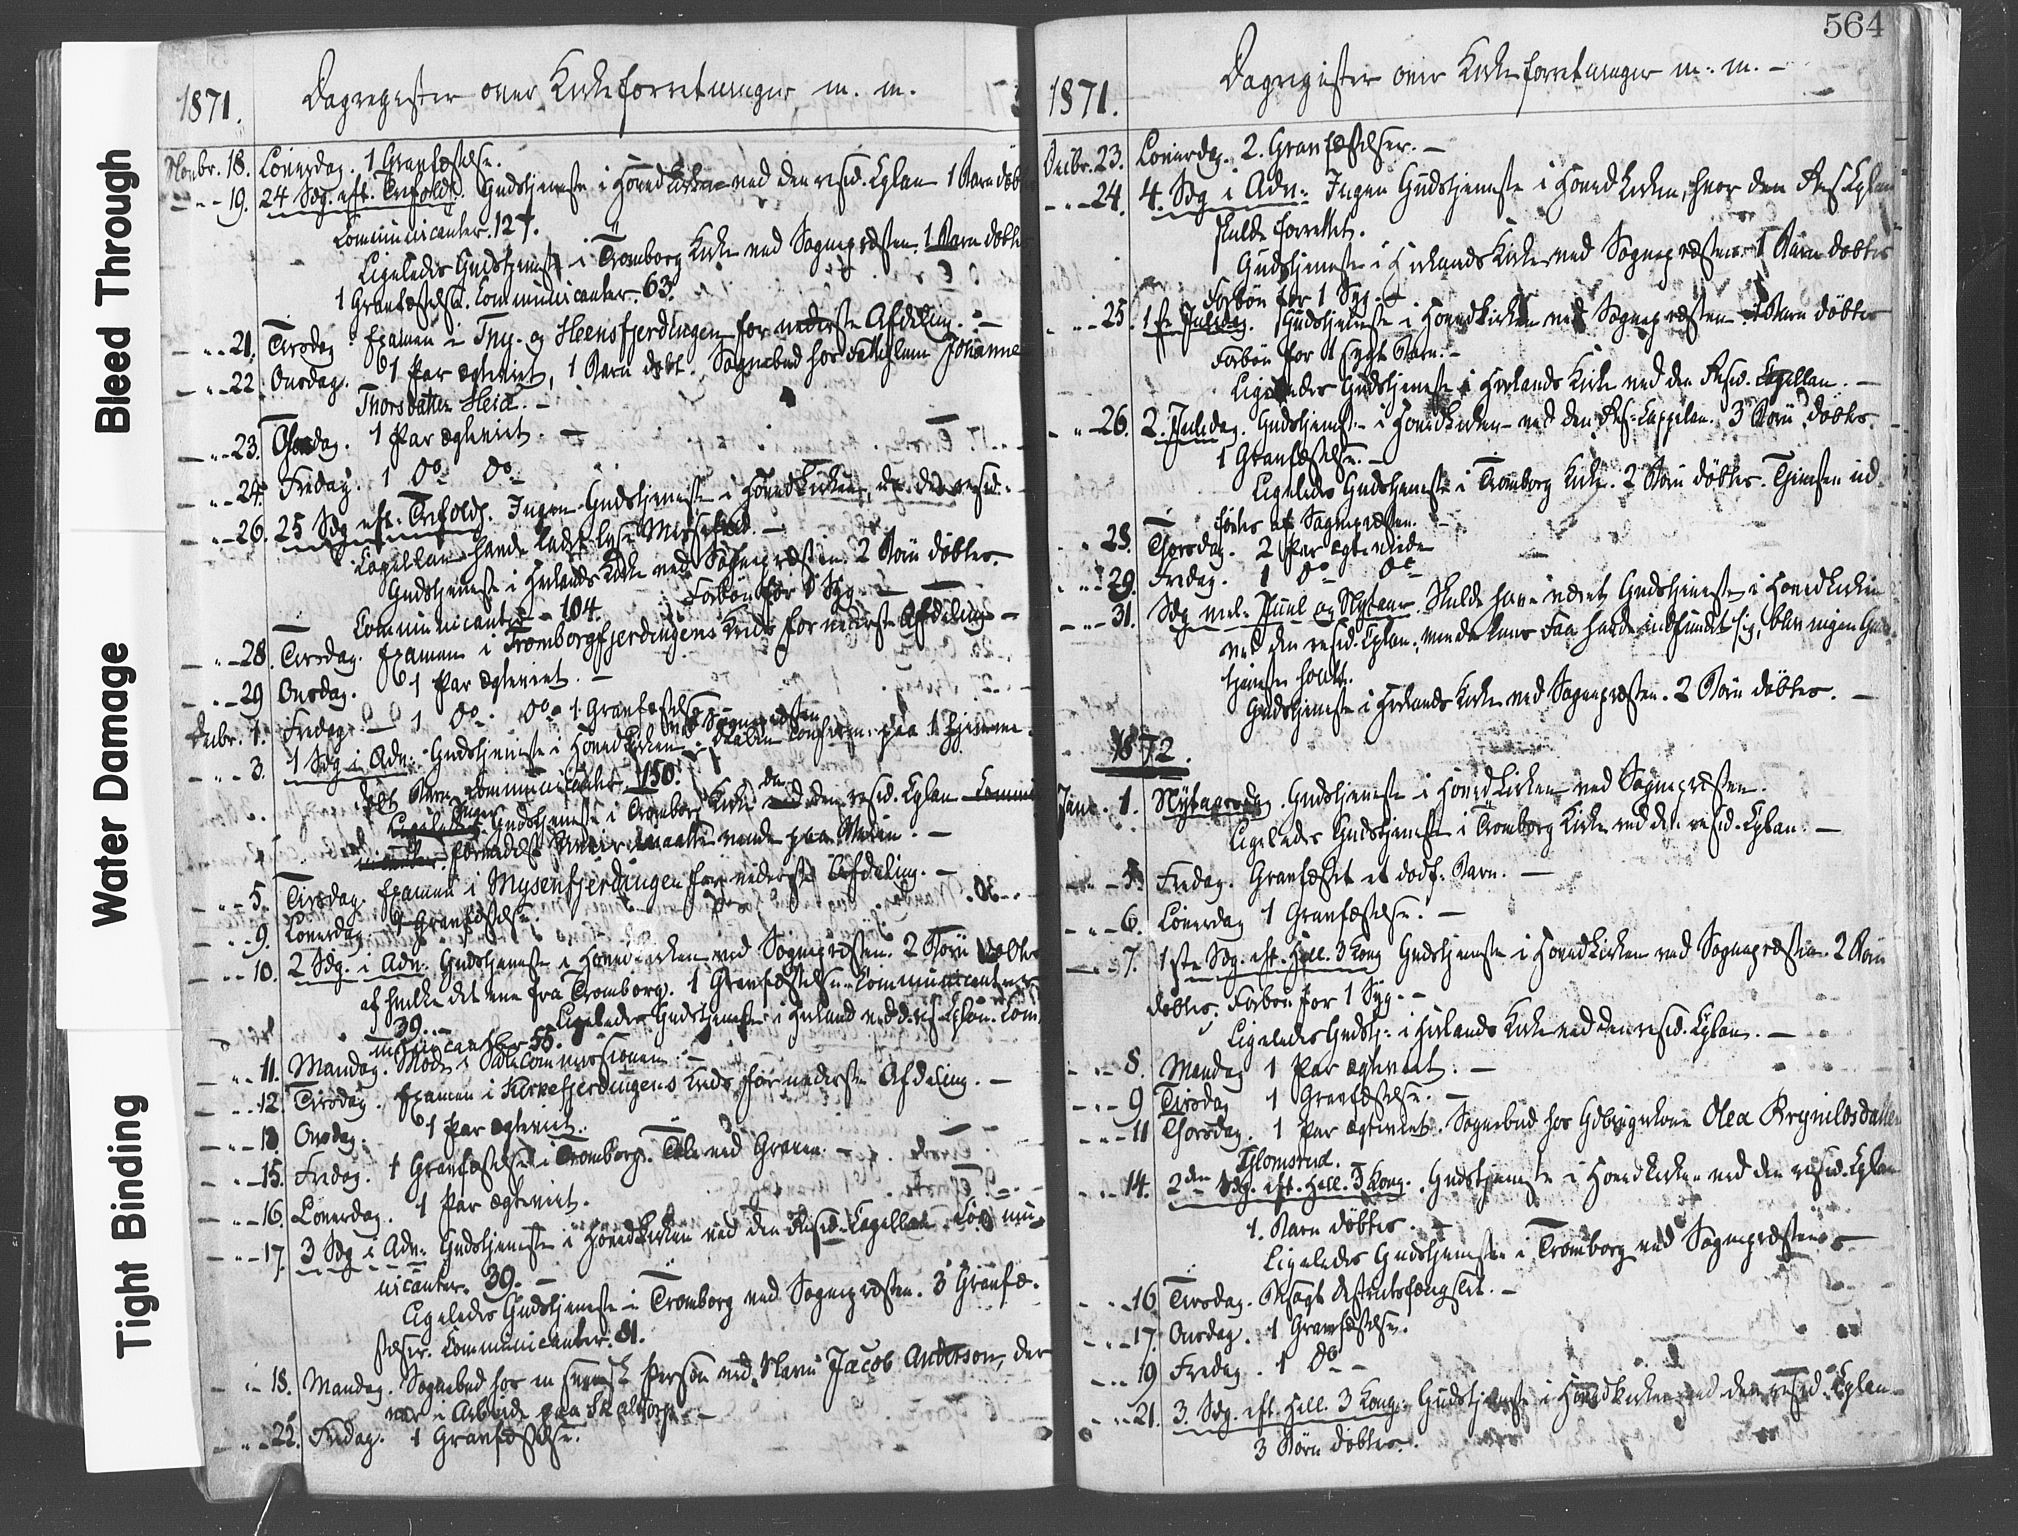 Bleed Through
Water Damage
Tight Binding
1871.
Dagregister over Kirkeforretninger m. m.
Novbr. 18. Løverdag. 1 Gravfæstelse.
— " — 19. 24 Sdg. eft. Trefoldh. Gudstjeneste i Hovedkirken ved den resid. Cplan 1 Barn døbt
Communicanter. 127.
Ligeledes Gudstjeneste i Trømborg Kirke ved Sognepræsten. 1 Barn døbtes
1 Gravfæstelse. Communicanter. 63.
— " — 21. Tirsdag Examen i og Heensfjerdingen for nederste Afdeling. —
— " — 22. Onsdag. 1 Par ægteviet, 1 Barn døbt. Sognebud hos Johanne
Thorsdatter Heid. —
— " — 23. Thorsdag. 1 Par ægteviet —
— " — 24. Fredag. 1 do do
— " — 26. 25 Sdg. eft. Trefoldh. Ingen Gudstjeneste i Hovedkirken, da den resid.
Capellan havde ladet lyse Messefald. —
Gudstjeneste i Hærlands Kirke ved Sognepræsten. 2 Børn døbtes.
Communicanter — 104. Forbøn for 1 Syg —
— " — 28. Tirsdag. Examen i Trømborgfjerdingens Kreds for nederste Afdeling —
— " — 29 Onsdag. 1 Par ægteviet. —
Decbr. 1. Fredag. — 1 do. do 1 Gravfæstelse —
ved Sognepræsten
— " — 3. 1 Sdg. i Adv: Gudstjeneste i Hovedkirken. Daaben confirm. paa 1 hjemme-
døbt Barn. Communicanter. 150.
Ligeledes Ingen Gudstjeneste i Trømborg Kirke da ved den resid. Cplan Commu
formedelst maatte vende paa Veien. —
— " — 5. Tirsdag. Examen i Mysenfjerdingen for nederste Afdeling. —
— " — 9. Løverdag. 1 Gravfæstelse.
— " — 10. 2 Sdg. i Adv. Gudstjeneste i Hovedkirken ved Sognepræsten. 2 Børn døbtes
af hvilke det ene fra Trømborg. 1 Gravfæstelse. Communicanter
39. — Ligeledes Gudstjeneste i Hærland ved d. res. Cplan. Com
municanter 55.
— " — 11. Mandag. Møde i Skolecommissionen. —
— " — 12. Tirsdag. Examen i Kirkefjerdingens Kreds for nederste Afdeling. —
— " — 13. Onsdag. 1 Par ægteviet.
— " — 15. Fredag. 1 Gravfæstelse i Trømborg. Tale ved Graven. —
— " — 16. Løverdag. 1 Par ægteviet.
— " — 17. 3 Sdg. i Adv: Gudstjeneste i Hovedkirken ved den Resid. Capellan. Commu-
nicanter. 39. —
Ligeledes Gudstjeneste i Trømborg ved Sognepræsten. 3 Gravfæ-
stelser. Communicanter. 81.
— " — 18. Mandag. Sognebud hos en svensk Person ved Navn Jacob Anderson, der
var i Arbeide paa —
— " — 22. Fredag. 1 Gravfæstelse.
564
1871.
Dagregister over Kirkeforretninger m. m. —
Decbr. 23. Løverdag. 2. Gravfæstelser. —
— " — 24. 4. Sdg i Adv: Ingen Gudstjeneste i Hovedkirken, hvor den Res. Cplan
skulde forrettet.
Gudstjeneste i Hærlands Kirke ved Sognepræsten. 1 Barn døbtes
Forbøn for 1 Syg. —
— " — 25. 1ste Juledag. Gudstjeneste i Hovedkirken ved Sognepræsten. 1 Barn døbtes
Forbøn for 1 sygt Barn. —
Ligeledes Gudstjeneste i Hærlands Kirke ved den Resid. Capellan. —
— " — 26. 2. Juledag. Gudstjeneste i Hovedkirken ved den Res: Cappelan. 3 Børn døbtes.
1 Gravfæstelse. —
Ligeledes Gudstjeneste i Trømborg Kirke. 2 Børn døbtes. Tjensten ud-
førtes af Sognepræsten. —
— " — 28. Thorsdag. 2 Par ægteviede —
— " — 29. Fredag. 1 do do
— " — 31. Sdg mel. Juul og Nytaar. Skulde have været Gudstjeneste i Hovedkirken
ved den resid. Cplan, men da kuns Faa havde indfundet sig, blev ingen Guds-
tjeneste holdt.
Gudstjeneste i Hærlands Kirke ved Sognepræsten. 2 Børn døbtes. —
1872.
Janr. 1. Nytaarsdag. Gudstjeneste i Hovedkirken ved Sognepræsten.
Ligeledes Gudstjeneste i Trømborg Kirke ved den resid. Cplan. —
— " — 5. Fredag. Gravfæstet et dødf. Barn. —
— " — 6. Løverdag 1 Gravfæstelse. —
— " — 7. 1ste Sdg. eft. Hell. 3 Kong Gudstjeneste i Hovedkirken ved Sognepræsten. 2 Børn
døbtes. Forbøn for 1 Syg. —
Ligeledes Gudstj: i Hærlands Kirke ved den resid. Cplan. —
— " — 8. Mandag 1 Par ægteviet. —
— " — 9 Tirsdag 1 Gravfæstelse. —
— " — 11 Thorsdag. 1 Par ægteviet. Sognebud hos Gdbrugerkone Olea Brynildsdatter
Glomsrud.
— " — 14. 2den Sdg. eft. Hell. 3 Kong. Gudstjeneste i Hovedkirken ved den resid. Cplan
1. Barn døbtes. —
Ligeledes Gudstjeneste i Trømborg ved Sognepræsten. —
— " — 16 Tirsdag. Besøgt Distriktsfængslet. —
— " — 17. Onsdag. 1 Gravfæstelse.
— " — 19 Fredag. 1 do —
— " — 21. 3. Sdg. eft. Hell. 3 Kong. Gudstjeneste i Hovedkirken ved den resid. Cplan
3 Børn døbtes.